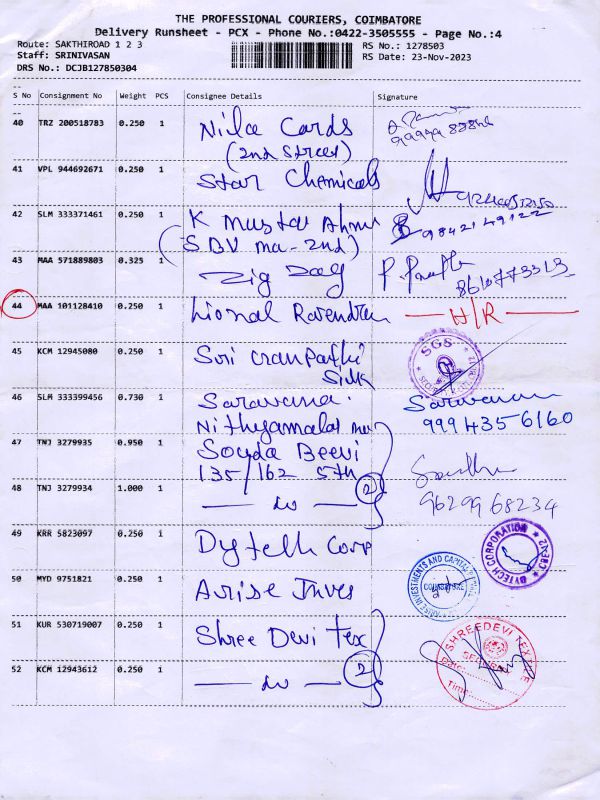 THE PROFESSIONAL COURIERS, COIMBATORE
Delivery Runsheet - PCX - Phone No.:0422-3505555 - Page No.:4
Route: SAKTHIROAD 1 2 3
RS No.: 1278503
Staff: SRINIVASAN
RS Date: 23-Nov-2023
DRS No.: DCJB127850304
S No Consignment No Weight PCS Consignee Details Signature
40 TRZ 200518783 0.250 1 Nila Cards
(2nd Street)
41 VPL 944692671 0.250 1 Star Chemicals
42 SLM 333371461 0.250 1 K Mustaf Ahm 9842149122
(SBV ma-2nd)
43 MAA 571889803 0.325 1 Zig Zag 8610773313
44 MAA 101128410 0.250 1 Lional Ravendran H/R
45 KCM 12945080 0.250 1 Sri Cranpathi SGS
Silk
46 SLM 333399456 0.730 1 Saravana Saravanan
Nithyamalar 9994356160
47 TNJ 3279935 0.950 1 Souda Beevi
135/162 5th 2
48 TNJ 3279934 1.000 1 — do — 9629968234
49 KRR 5823097 0.250 1 Dytech Corp DYTECH CORPORATION
50 MYD 9751821 0.250 1 Arise Inves ARISE INVESTMENTS AND CAPITAL
COIMBATORE
51 KUR 530719007 0.250 1 Shree Devi Tex SHREEDEVI TEXTILE
SECURITY
52 KCM 12943612 0.250 1 — do — 2 Date:
Time: